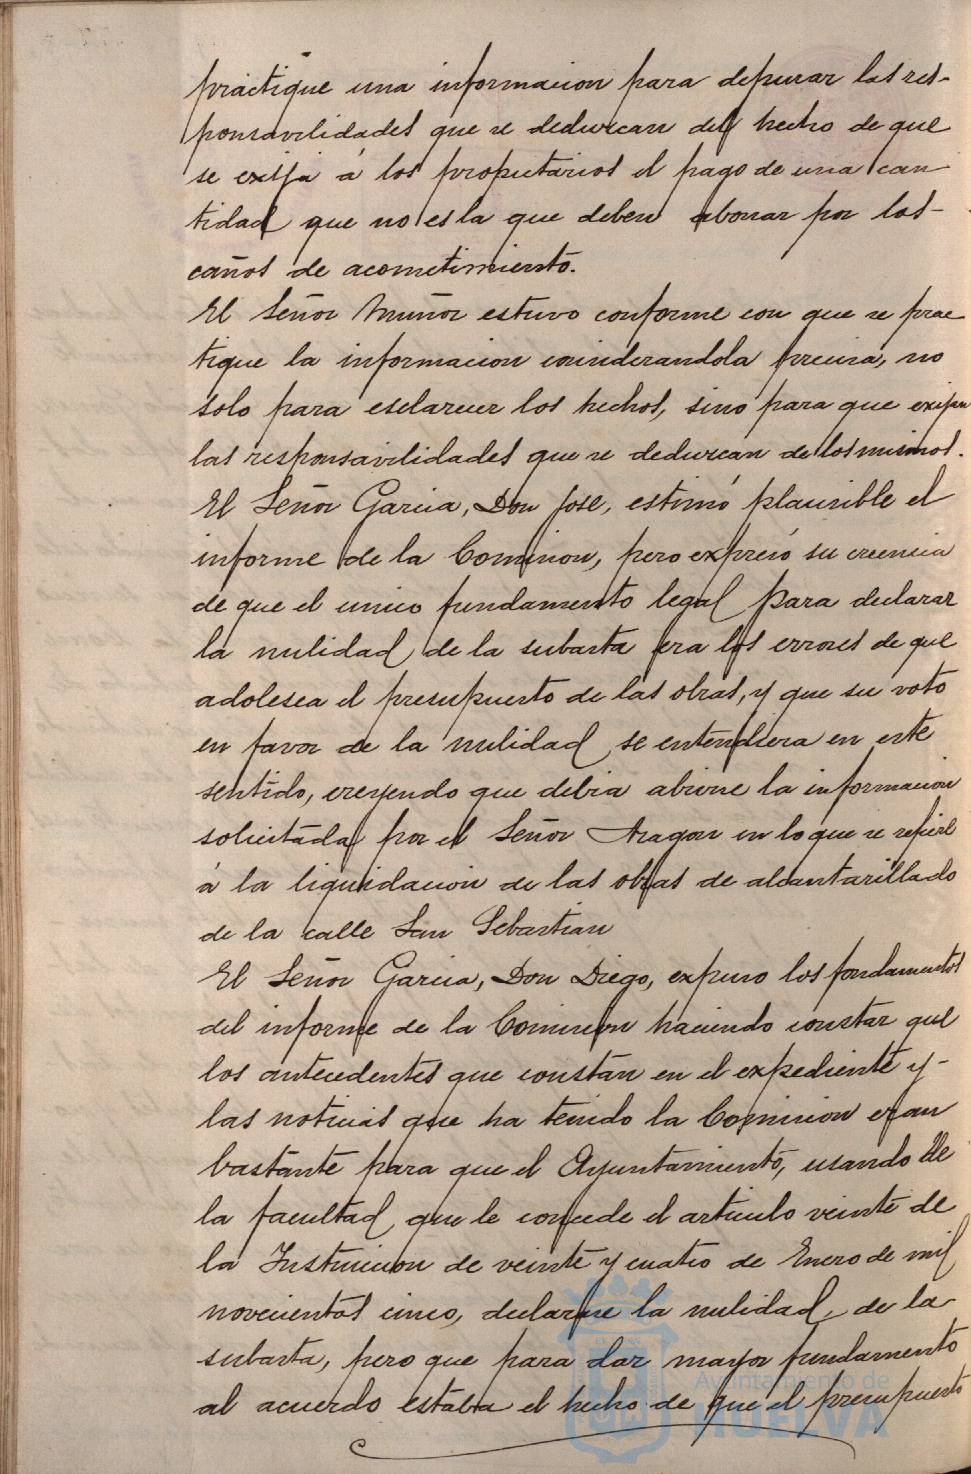 practique una informacion para depurar las res-
ponsavilidades que se deduzcan del hecho de que
se exija á los propietarios el pago de una can
tidad que no es la que deben abonar por los-
caños de acometimiento.
El Señor Muñoz estuvo conforme con que se prac
tique la informacion considerandola precisa, no
solo para esclarecer los hechos, sino para que exijan
las responsavilidades que se deduzcan de los mismos.
El Señor Garcia, Don José, estimó plausible el
informe de la Comision, pero expresó su creencia
de que el unico fundamento legal para declarar
la nulidad de la subasta era los errores de que
adolesca el presupuesto de las obras, y que su voto
en favor de la nulidad se entendiera en este
sentido, creyendo que debia abrirse la informacion
solicitada por el Señor Aragon en lo que se refiere
á la liquidacion de las obras de alcantarillado
de la calle San Sebastian
El Señor Garcia, Don Diego, expuso los fondamentos
del informe de la Comision haciendo constar que
los antecedentes que constan en el expediente y-
las noticias que ha tenido la Comision eran
bastante para que el Ayuntamiento, usando de
la facultad que le concede el articulo veinte de
la Instrucion de veinte y cuatro de Enero de mil
novecientos cinco, declarase la nulidad de la
subasta, pero que para dar mayor fundamento
al acuerdo estaba el hecho de que el presupuesto
Ayuntamiento de
HUELVA